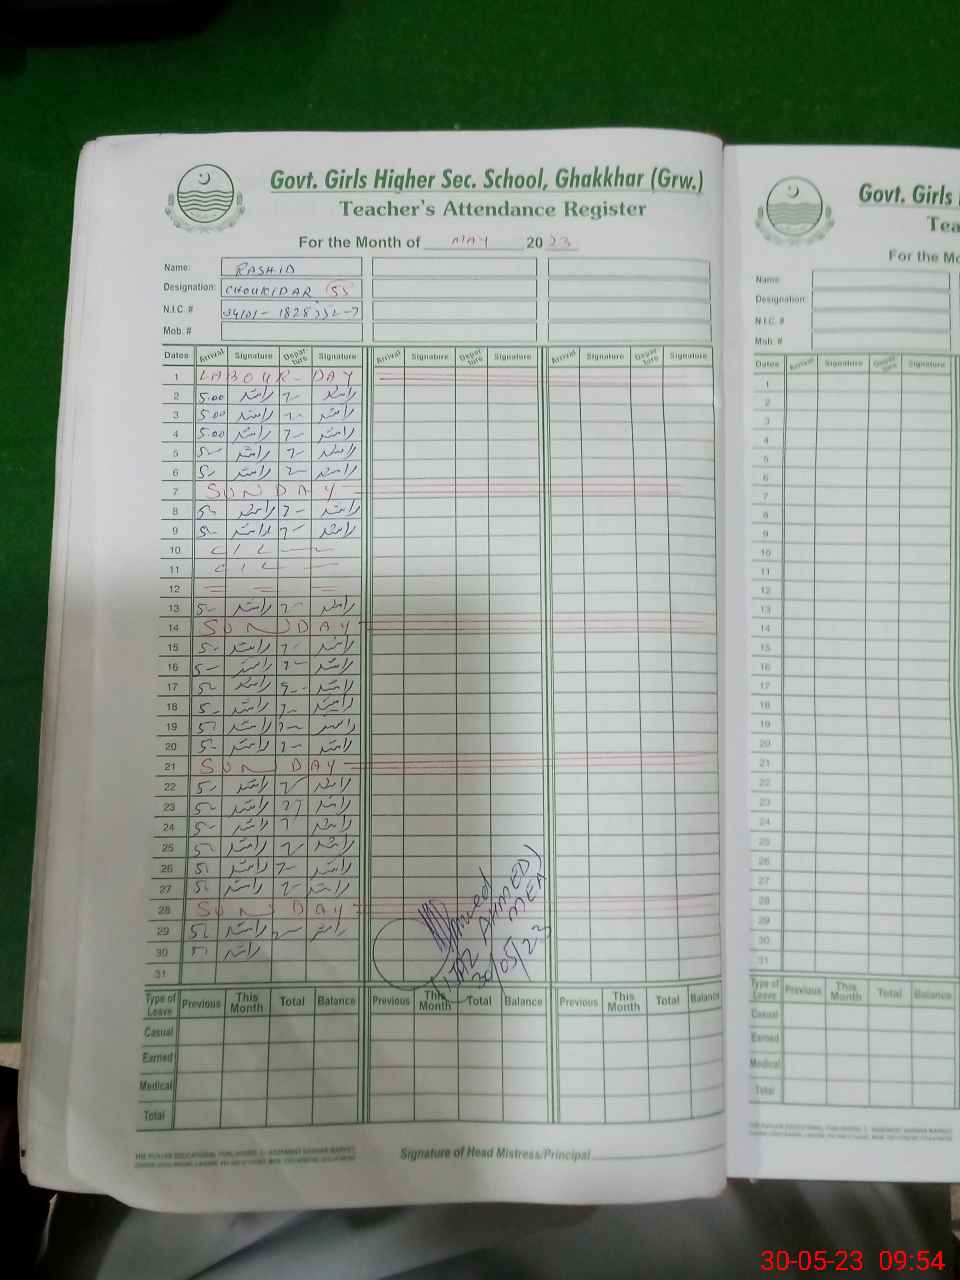 Govt. Girls Higher Sec. School, Ghakkhar (Grw.)
Teacher's Attendance Register
For the Month of MAY 2023
Name: RASHID
Designation: CHOUKIDAR (SS)
N.I.C. #
Mob. #
Dates Arrival Signature Depar-ture Signature Arrival Signature Depar-ture Signature Arrival Signature Depar-ture Signature
1 LABOUR-DAY
2 5.00 راشد 7- راشد
3 5.00 راشد 7- راشد
4 5.00 راشد 7- راشد
5 5- راشد 7- راشد
6 5- راشد 7- راشد
7 SUNDAY
8 5- راشد 7- راشد
9 5- راشد 7- راشد
10
11
12
13 5- راشد 7- راشد
14 SUNDAY
15 5- راشد 7- راشد
16 5- راشد 7- راشد
17 5- راشد راشد
18 5- راشد 7- راشد
19 5- راشد 7- راشد
20 5- راشد 7- راشد
21 SUNDAY
22 5- راشد 7- راشد
23 5- راشد راشد
24 5- راشد 7- راشد
25 5- راشد 7- راشد
26 5- راشد 7- راشد
27 5- راشد 7- راشد
28 SUNDAY
29 5- راشد راشد
30 5- راشد
31
AHMED)
MEA
30/05/23
Type of Leave Previous This Month Total Balance Previous This Month Total Balance Previous This Month Total Balance
Casual
Earned
Medical
Total
Signature of Head Mistress/Principal
Govt. Girls
Tea
For the Mo
Name:
Designation:
N.I.C. #
Mob. #
Dates Arrival Signature Depar-ture Signature
1
2
3
4
5
6
7
8
9
10
11
12
13
14
15
16
17
18
19
20
21
22
23
24
25
26
27
28
29
30
31
Type of Leave Previous This Month Total Balance
Casual
Earned
Medical
Total
30-05-23 09:54